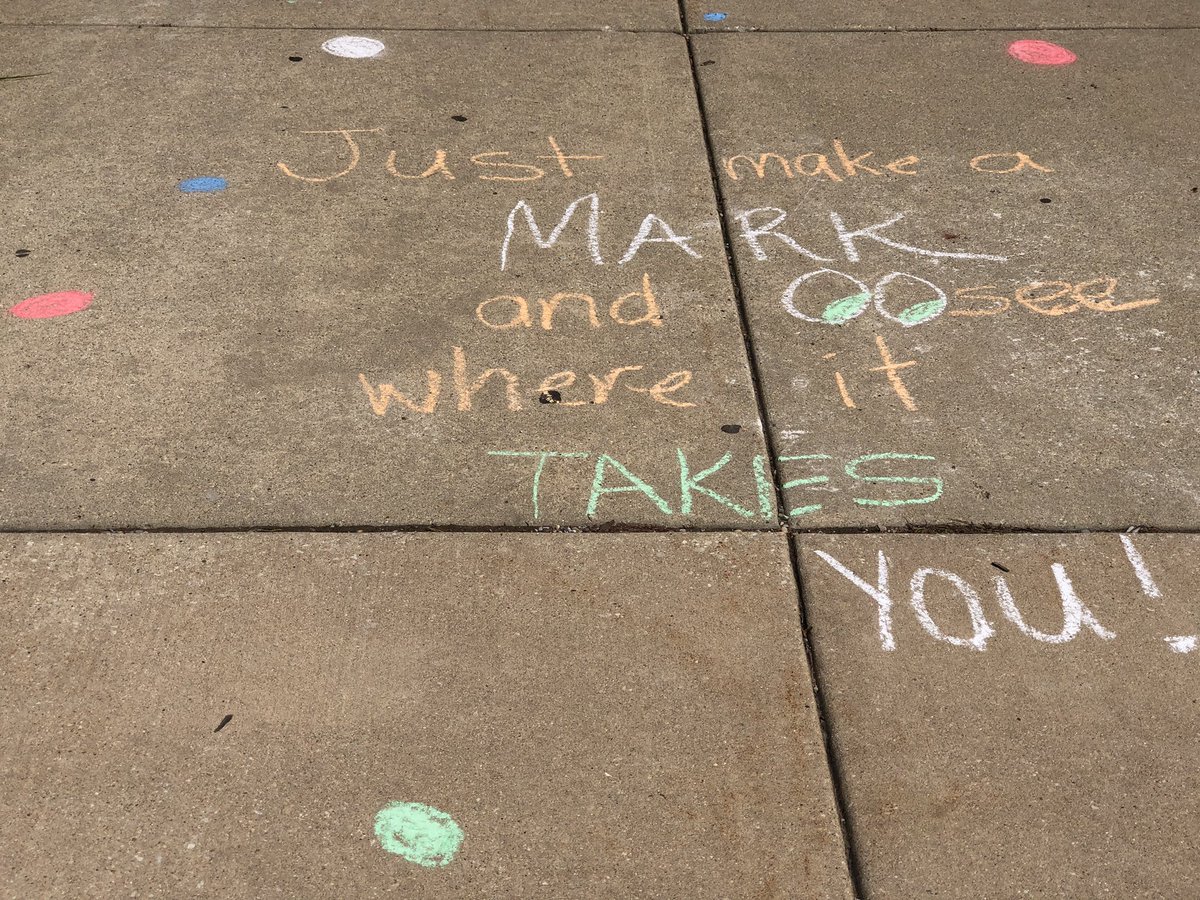 Just make a
MARK
and see
where it
TAKES
YOU!